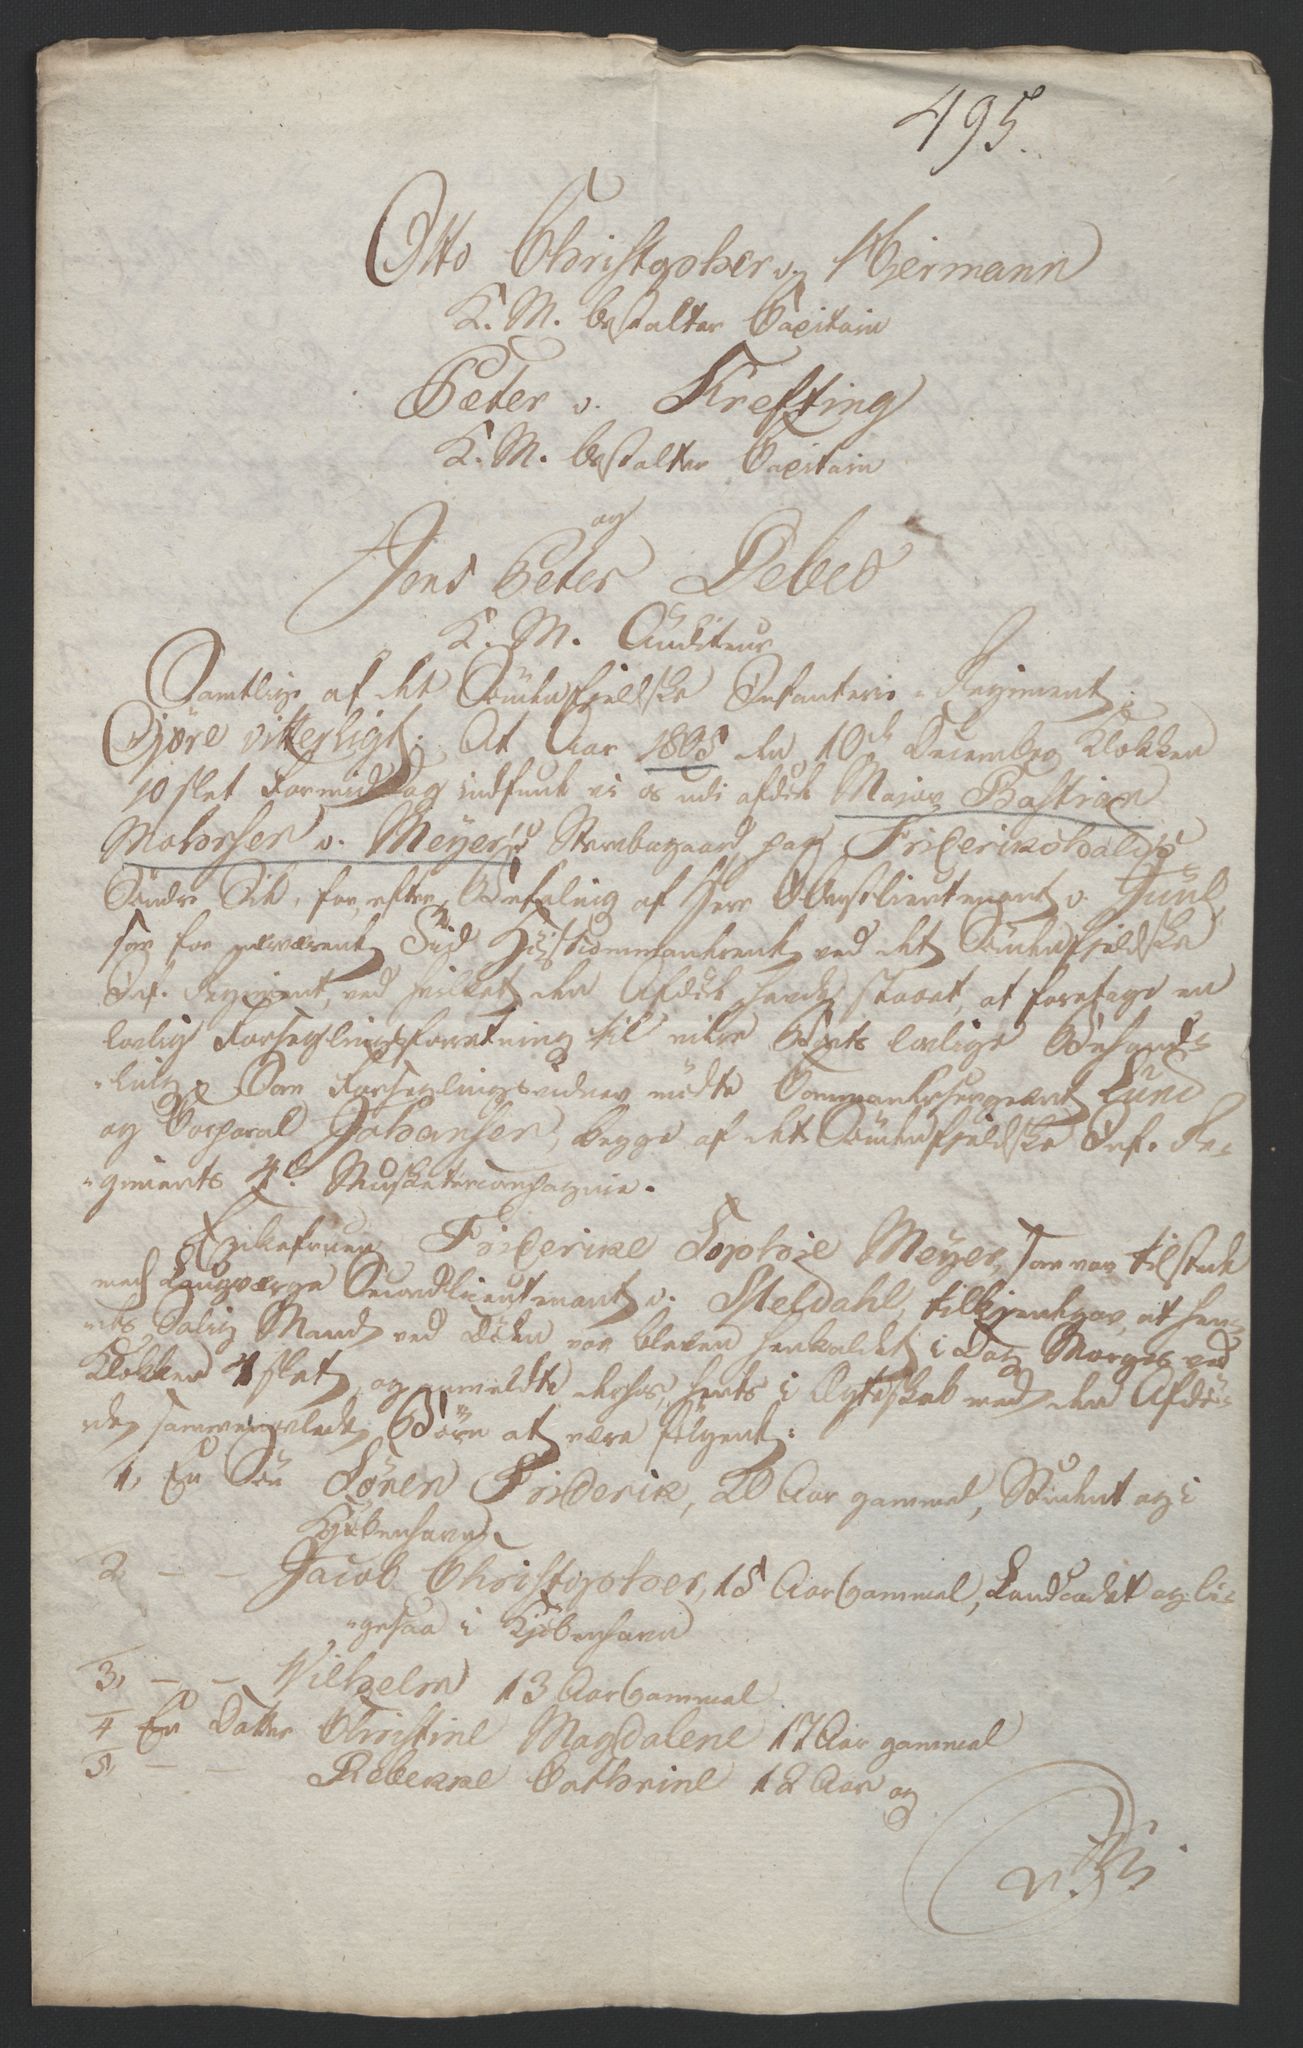 495.
Otto Christopher v. Hiermann
K. M. bestalter Capitain
Peter v. Krefting
K. M. bestalter Capitain
og
Jens Peter Debes
K. M. Auditeur
Samtlige af det Søndenfjeldske Infanterie-Regiment,
Gjøre vitterligt: At Aar 1805 den 10de December Klokken
10 slet Formiddag indfunde vi os udi afdøde Major Bastian
Mohrsen v. Meyers Sterbogaard paa Friderikshalds
Søndre Side, for, efter Befaling af Herr Obristlieutenant v. Juul
som for nærværende Tid Høistcommanderende ved det Søndenfjeldske
Inf. Regiment, ved hvilket den Afdøde havde staaet, at foretage en
lovlig Forseglingsforretning til videre Boets lovlige Behand-
-ling. Som Forseglingsvidner mødte Commandersergeant Lund
og Corporal Johansen, begge af det Søndenfjeldske Inf. Re-
-giments 4de Musketercompagnie.
Enkefruen Friderike Sophie Meyer, som var tilstede
med Laugværge Secondlieutenant v. Steldahl, tilkjendegav, at hen-
-des Salig Mand ved Døden var bleven henkaldet i Dag Morges ved
Klokken 4 slet, og anmeldte derhos, hendes i Ægteskab med den Afdø-
de sammenavlede Børn at være følgende:
1, En Søn Søren Friderik, 20 Aar gammel, Student og i
Kjøbenhavn.
2 — — Jacob Christopher, 15 Aar gammel, Landcadet og li-
-gesaa i Kjøbenhavn
3, — — Vilhelm 13 Aar gammel
4 En Datter Christine Magdalene 17 Aar gammel
5, — — Rebekke Cathrine 12 Aar og